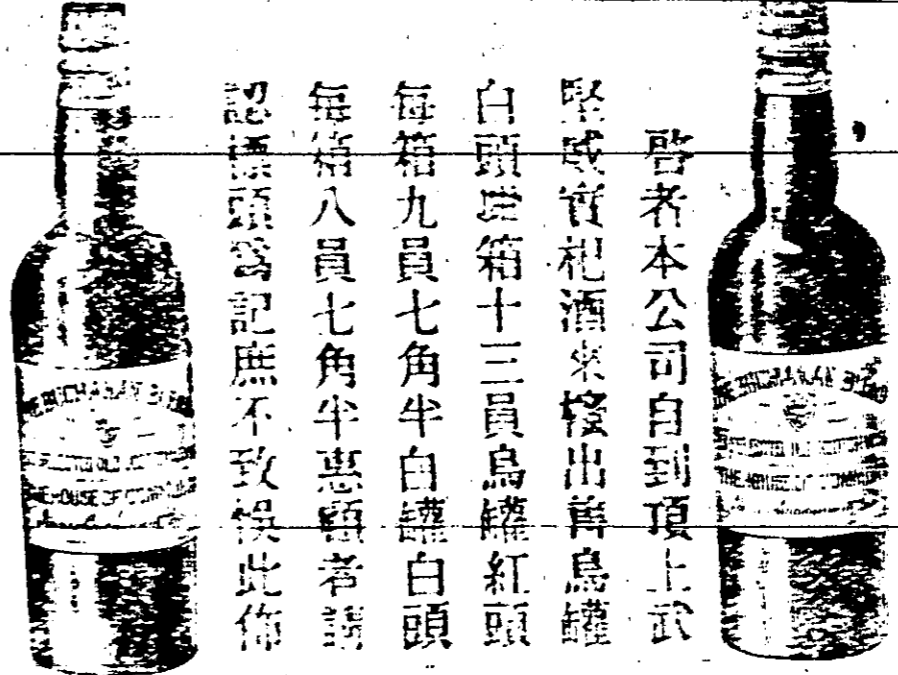 啓者本公司自到頂上武
堅威倚杞酒來檳出售烏罐
白頭每箱十三員烏罐紅頭
每箱九員七角半白罐白頭
每箱八員七角半惠顧者請
認標頭爲記庶不致悞此佈
THE BUCHANAN BLEND
THE HOUSE OF COMMONS
THE BUCHANAN BLEND
THE HOUSE OF COMMONS